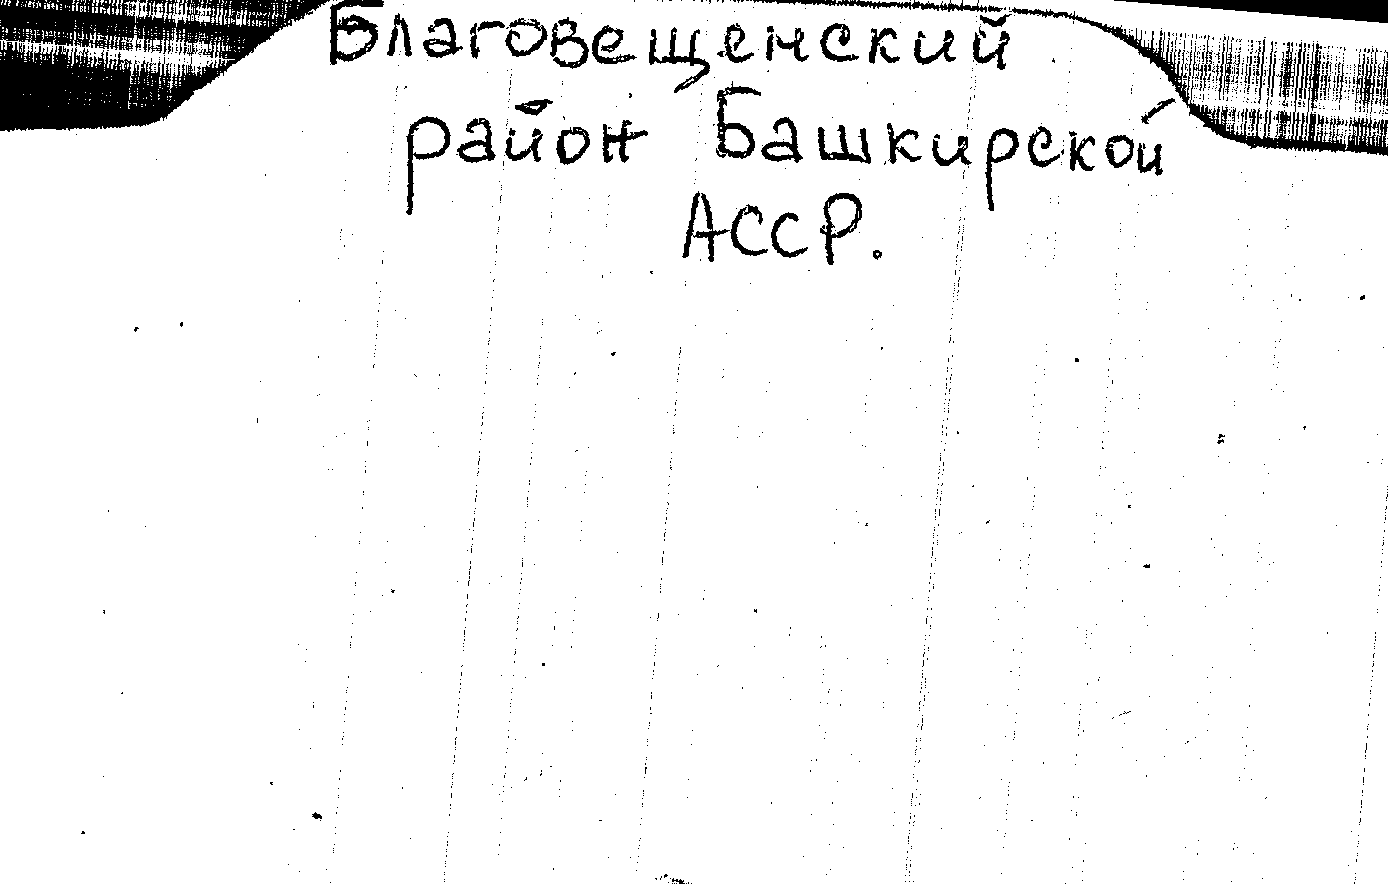 Благовещенский
район Башкирской
АССР.